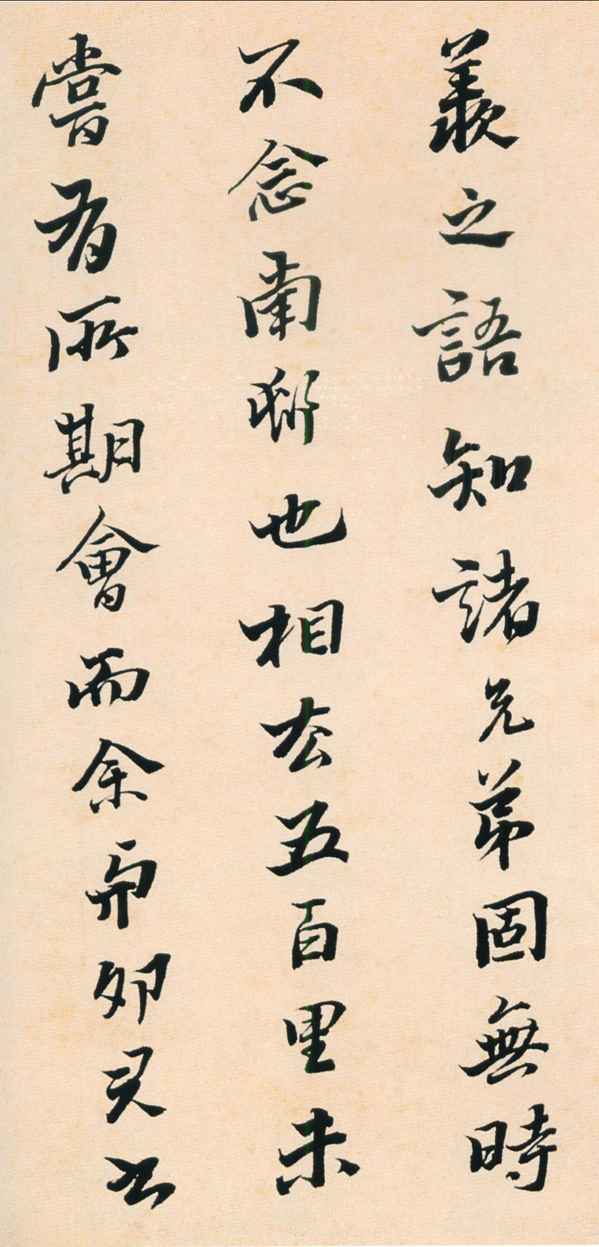 羨之語知諸兄弟固無時
不念南邨也相去五百里未
嘗有所期會而余與卯君